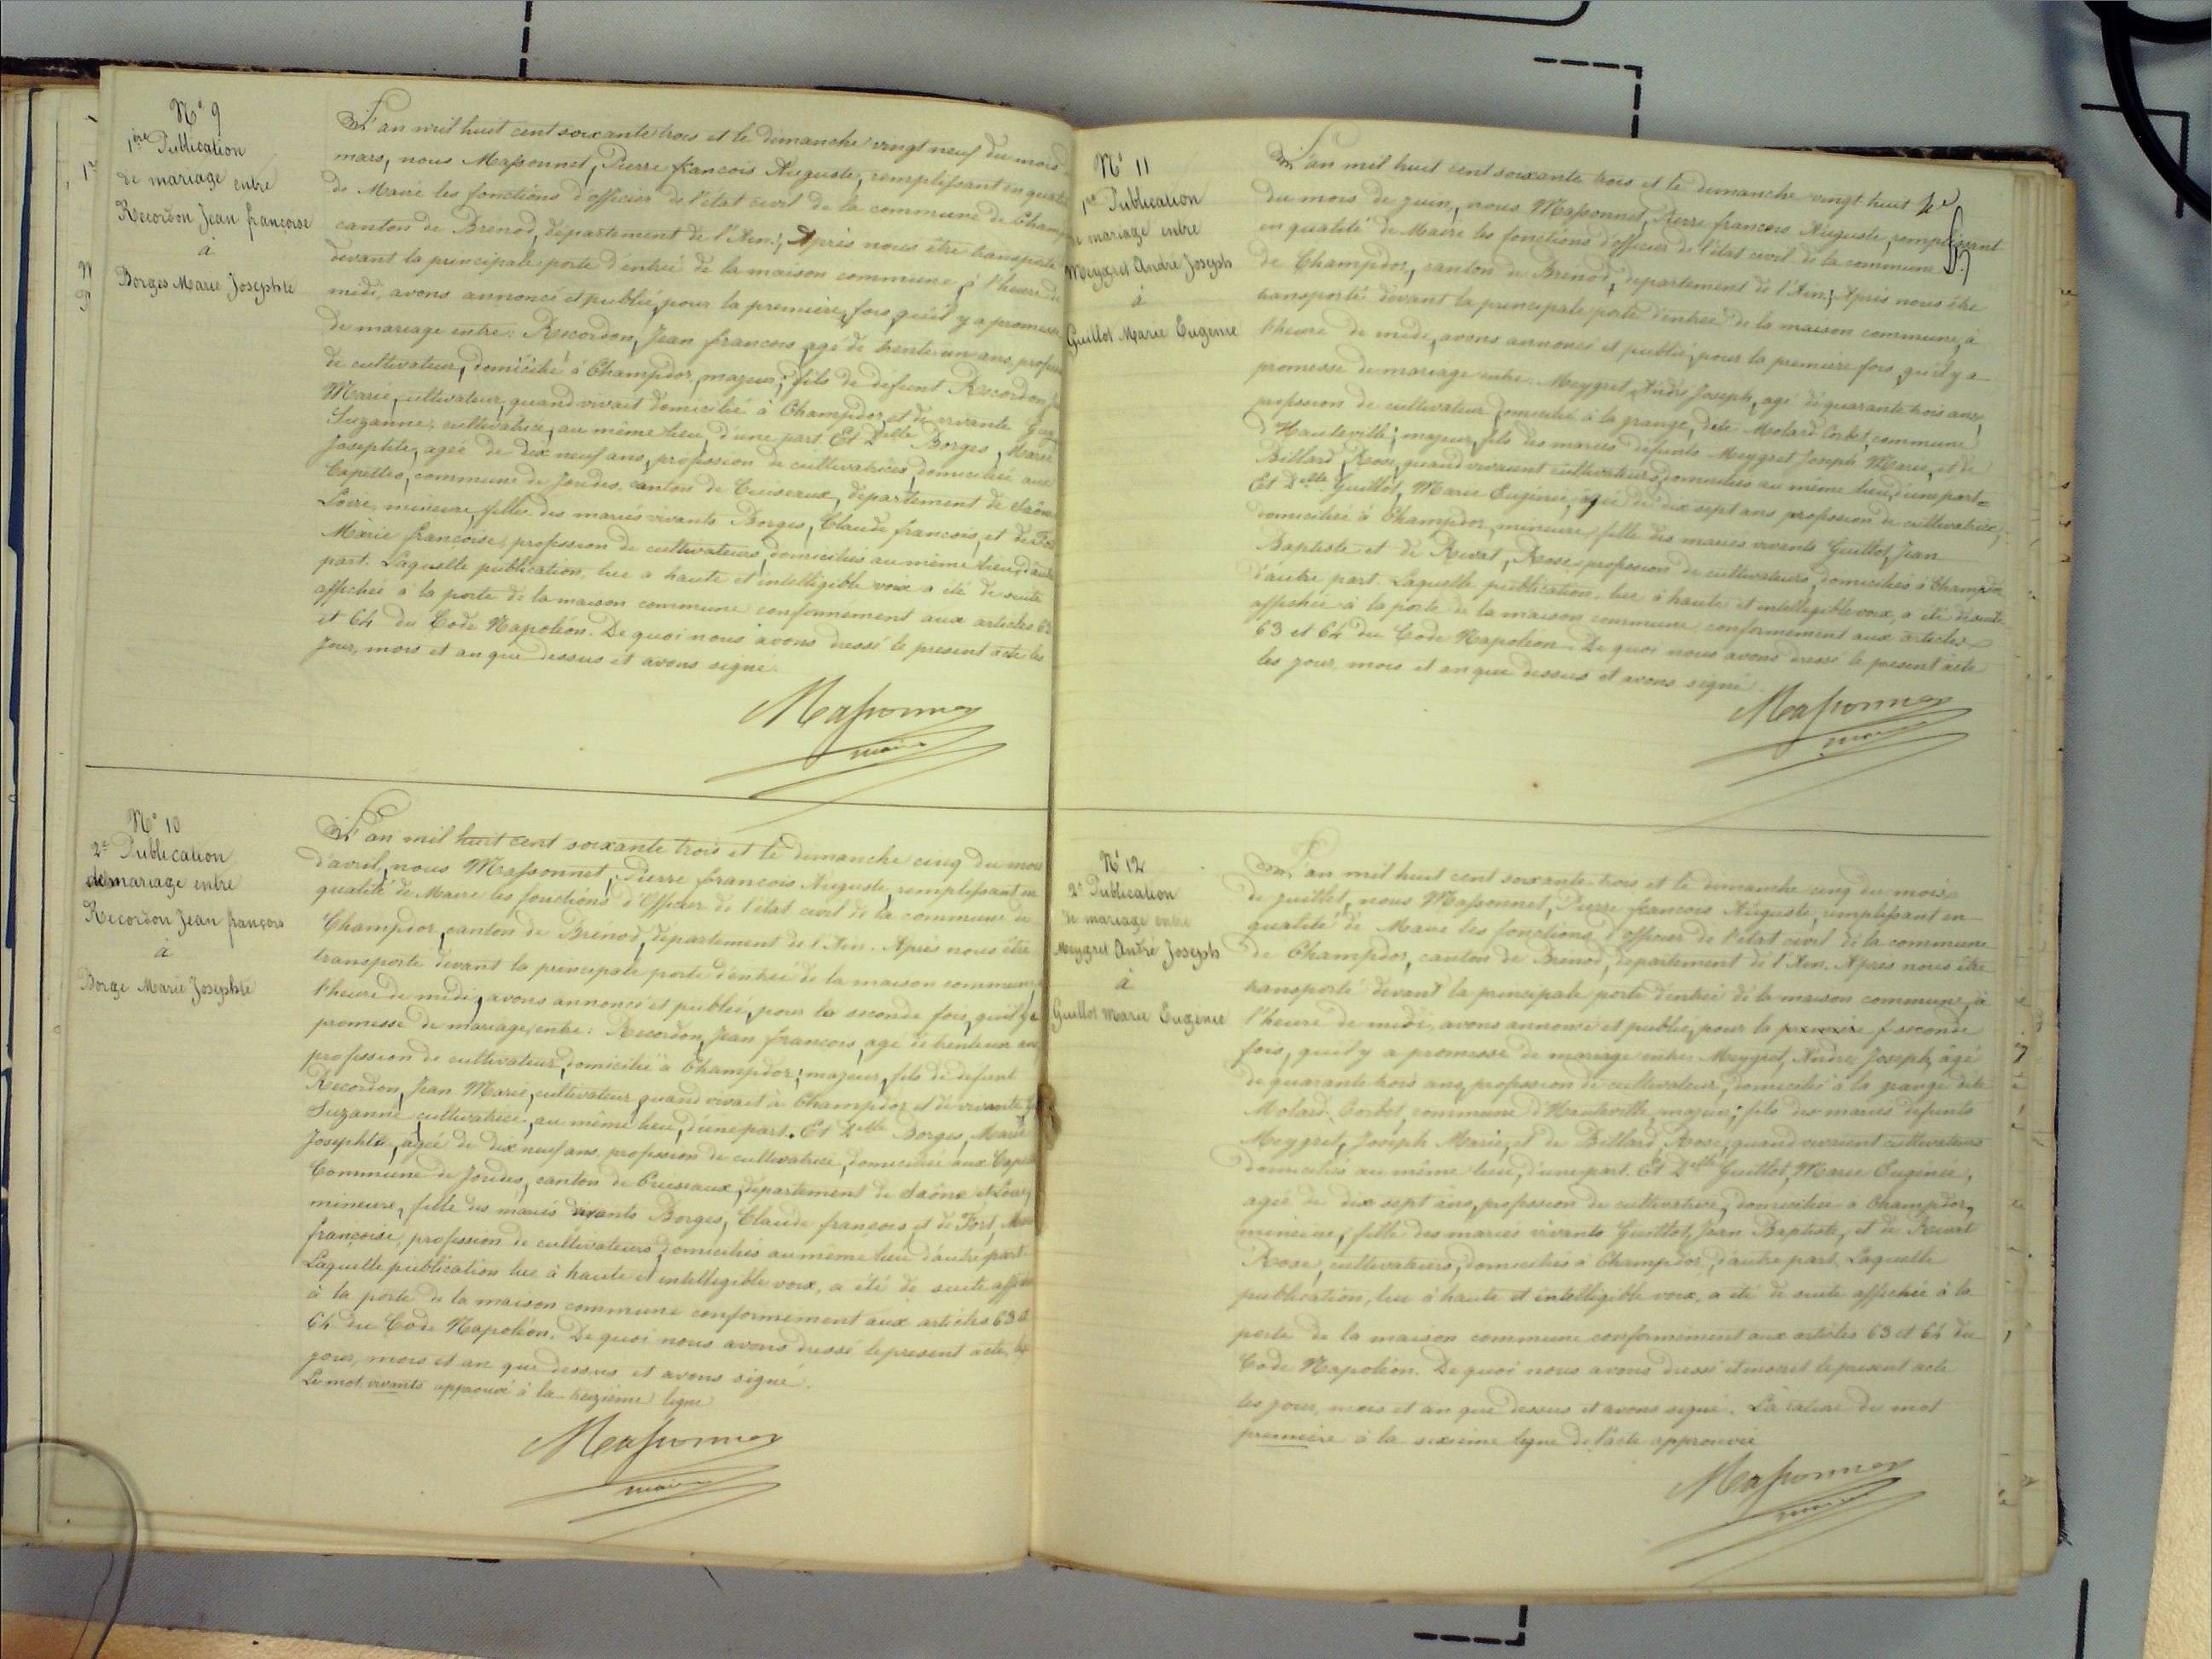 N° 9
1ère Publication
de mariage entre
Recordon Jean françoise
à
Borges Marie Josephte
L'an mil huit cent soixante trois et le dimanche vingt neuf du mois
mars, nous Massonnet, Pierre francois Auguste, remplissant en qualité
de Maire les fonctions d'officier de l'état civil de la commune de Champ
canton de Brenod, département de l'Ain; Après nous être transporté
devant la principale porte d'entrée de la maison commune, à l'heure de
midi, avons annoncé et publié, pour la première fois, qu'il y a promesse
de mariage entre: Recordon, Jean francois, agé de trente un ans, profess
de cultivateur, domicilié à Champdor, majeur; fils de défunt Recordon, J
Marie, cultivateur, quand vivait domicilié à Champdor, et de vivante Guy
Suzanne, cultivatrice, au même lieu, d'une part. Et Delle Borges, Marie
Josephte, agée de dix neuf ans, profession de cultivatrice, domiciliée aux
Capettes, commune de Joudes, canton de Cuiseaux, département de Saône
Loire, mineure, fille des mariés vivants Borges, Claude francois, et de For
Marie françoise, profession de cultivateurs, domiciliés au même lieu, d'autre
part. Laquelle publication, lue a haute et intelligible voix a été de suite
affichée à la porte de la maison commune conformement aux articles 63
et 64 du Code Napoléon. De quoi nous avons dressé le present acte les
jour, mois et an que dessus et avons signé.
Massonnet
maire
N° 10
2e Publication
de mariage entre
Recordon Jean françois
à
Borge Marie Josephte
L'an mil huit cent soixante trois et le dimanche cinq du mois
d'avril, nous Massonnet, Pierre francois Auguste, remplissant en
qualité de Maire les fonctions d'Officier de l'état civil de la commune de
Champdor, canton de Brenod, département de l'Ain. Après nous être
transporté devant la principale porte d'entrée de la maison commune
l'heure de midi, avons annoncé et publié, pour la seconde fois, qu'il y a
promesse de mariage entre: Recordon, Jean francois, agé de trente un ans
profession de cultivateur, domicilié à Champdor; majeur, fils de défunt
Recordon, Jean Marie, cultivateur quand vivait à Champdor, et de vivante Gu
Suzanne, cultivatrice, au même lieu, d'une part. Et Delle Borges, Marie
Josephte, agée de dix neuf ans, profession de cultivatrice, domiciliée aux Capet
Commune de Joudes, canton de Cuiseaux, département de Saône et Loire,
mineure, fille des mariés vivants Borges, Claude françois, et de Fort, Marie
françoise, profession de cultivateurs, domiciliés au même lieu d'autre part.
Laquelle publication lue à haute et intelligible voix, a été de suite affichée
à la porte de la maison commune conformément aux articles 63 et
64 du Code Napoléon. De quoi nous avons dressé le present acte, les
jour, mois et an que dessus et avons signé.
Le mot vivants approuvé à la treizième ligne
Massonnet
maire
N° 11
1re Publication
de mariage entre
Meygret André Joseph
à
Guillot Marie Eugenie
L'an mil huit cent soixante trois et le dimanche vingt huit
du mois de juin, nous Massonnet, Pierre francois Auguste, remplissant
en qualité de Maire les fonctions d'officier de l'état civil de la commune
de Champdor, canton de Brenod, département de l'Ain; Après nous être
transporté devant la principale porte d'entrée de la maison commune, à
l'heure de midi, avons annoncé et publié, pour la première fois, qu'il y a
promesse de mariage entre: Meygret, André Joseph, agé de quarante trois ans,
profession de cultivateur domicilié à la grange, dite Molard Corbet, commune
d'Hauteville; majeur, fils des mariés défunts Meygret Joseph Marie, et de
Billard, Rose, quand vivaient cultivateurs, domiciliés au même lieu, d'une part
Et Delle Guillot, Marie Eugénie, agée de dix sept ans profession de cultivatrice,
domiciliée à Champdor, mineure, fille des mariés vivants Guillot, Jean
Baptiste et de Rivat, Rose, profession de cultivateurs, domiciliés à Champdor
d'autre part. Laquelle publication, lue à haute et intelligible voix, a été de suite
affichée à la porte de la maison commune, conformement aux articles
63 et 64 du Code Napoléon. De quoi nous avons dressé le present acte
les jour, mois et an que dessus et avons signé
Massonnet
maire
N° 12
2e Publication
de mariage entre
Meygret André Joseph
à
Guillot Marie Eugenie
L'an mil huit cent soixante trois et le dimanche cinq du mois
de juillet, nous Massonnet, Pierre francois Auguste, remplissant en
qualité de Maire les fonctions d'officier de l'état civil de la commune
de Champdor, canton de Brenod, département de l'Ain. Après nous être
transporté devant la principale porte d'entrée de la maison commune, à
l'heure de midi, avons annoncé et publié, pour la premiere seconde
fois, qu'il y a promesse de mariage entre Meygret, André Joseph, âgé
de quarante trois ans, profession de cultivateur, domicilié à la grange dite
Molard Corbet, commune d'Hauteville, majeur; fils des mariés défunts
Meygret, Joseph Marie, et de Billard, Rose, quand vivaient cultivateurs
domiciliés au même lieu, d'une part. Et Delle Guillot, Marie Eugénie,
agée de dix sept ans, profession de cultivatrice, domiciliée à Champdor,
mineure; fille des mariés vivants Guillot, Jean Baptiste, et de Rivat
Rose, cultivateurs, domiciliés à Champdor, d'autre part. Laquelle
publication, lue à haute et intelligible voix, a été de suite affichée à la
porte de la maison commune conformement aux articles 63 et 64 du
Code Napoléon. De quoi nous avons dressé et inscrit le present acte
les jour, mois et an que dessus et avons signé. La rature du mot
première à la sixième ligne de l'acte approuvée
Massonnet
maire